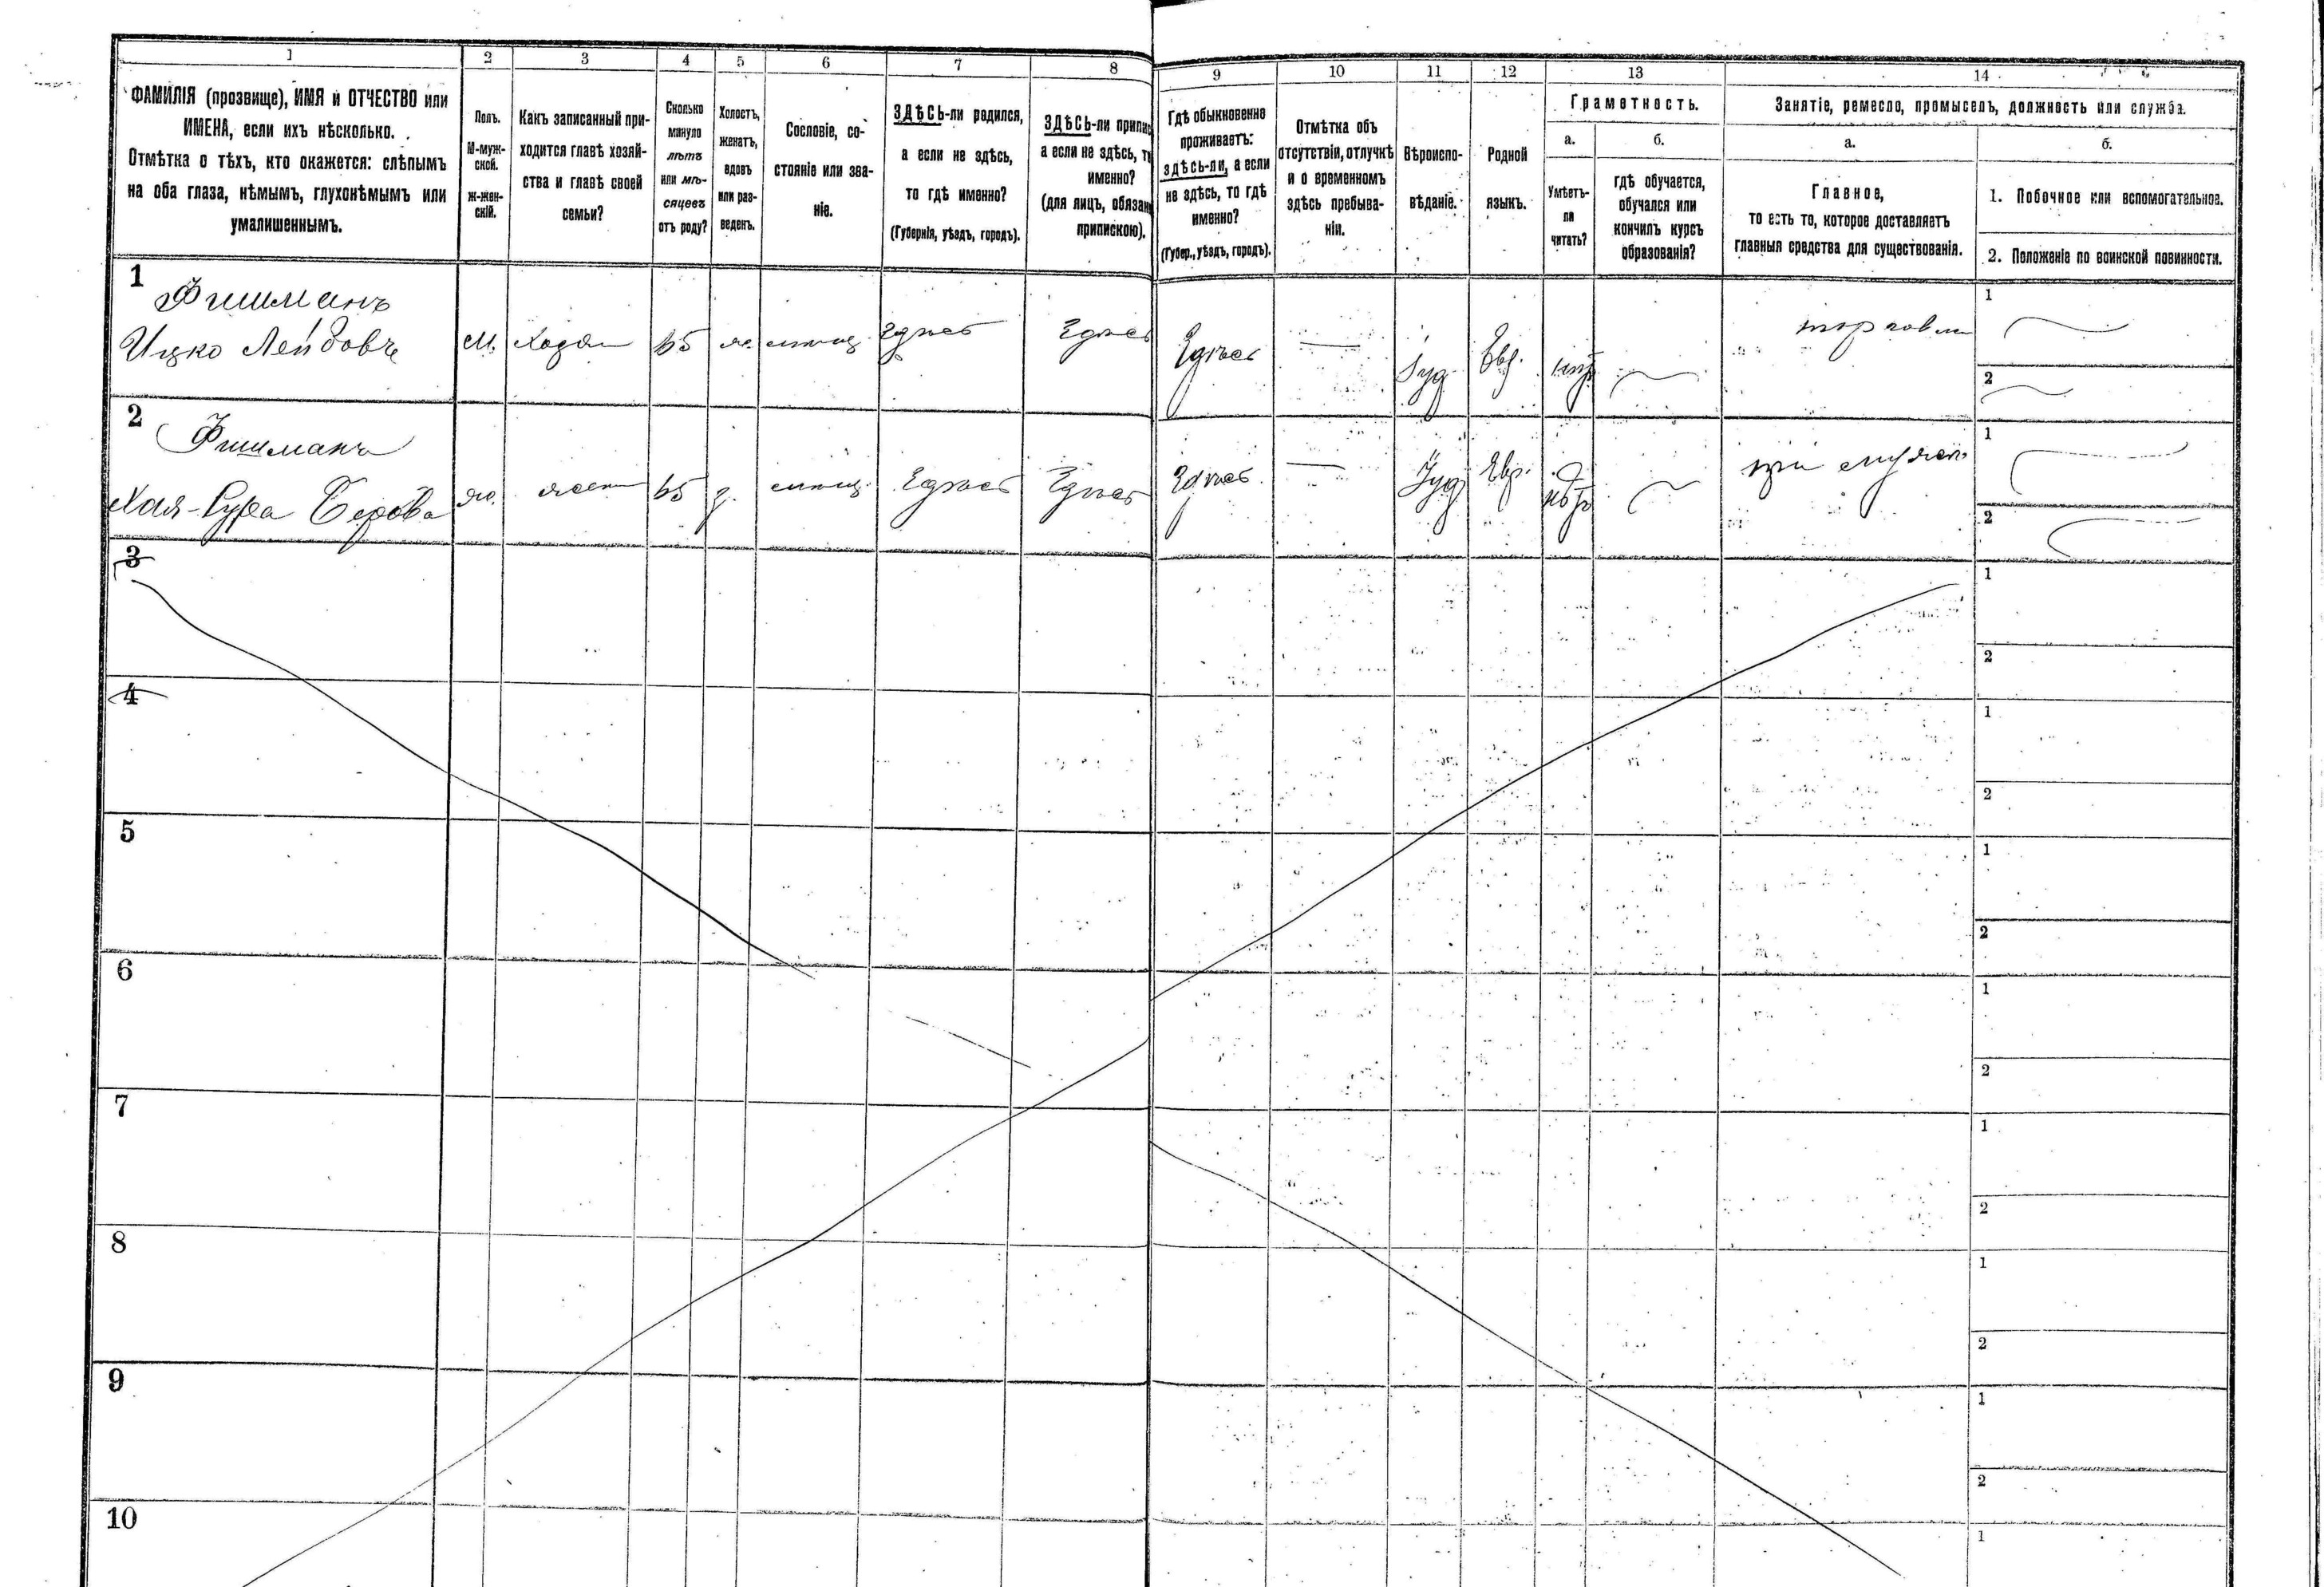 1 2 3 4 5 6 7 8 9 10 11 12 13 14
ФАМИЛІЯ (прозвище), ИМЯ и ОТЧЕСТВО или
ИМЕНА, если ихъ нѣсколько.
Отмѣтка о тѣхъ, кто окажется: слѣпымъ
на оба глаза, нѣмымъ, глухонѣмымъ или
умалишеннымъ.
Полъ.
М-муж-
ской.
ж-жен-
скій.
Какъ записанный при-
ходится главѣ хозяй-
ства и главѣ своей
семьи?
Сколько
минуло
лѣтъ
или мѣ-
сяцевъ
отъ роду?
Холостъ,
женатъ,
вдовъ
или раз-
веденъ.
Сословіе, со-
стояніе или зва-
ніе.
ЗДѢСЬ-ли родился,
а если не здѣсь,
то гдѣ именно?
(Губернія, уѣздъ, городъ).
ЗДѢСЬ-ли припис
а если не здѣсь, т
именно?
(для лицъ, обязан
припискою).
Гдѣ обыкновенно
проживаетъ:
здѣсь-ли, а если
не здѣсь, то гдѣ
именно?
(Губер., уѣздъ, городъ).
Отмѣтка объ
отсутствіи, отлучкѣ
и о временномъ
здѣсь пребыва-
ніи.
Вѣроиспо-
вѣданіе.
Родной
языкъ.
Грамотность.
а.
Умѣетъ-
ли
читать?
б.
гдѣ обучается,
обучался или
кончилъ курсъ
образованія?
Занятіе, ремесло, промыселъ, должность или служба.
а.
Главное,
то есть то, которое доставляетъ
главныя средства для существованія.
б.
1. Побочное или вспомогательное.
2. Положеніе по воинской повинности.
1
Фишманъ
Ицко Лейбовъ М. Хозяин 65 ж. мѣщ. Здѣсь Здѣсь Здѣсь — Іуд. Евр. нѣтъ торговля
1
2
2
Фишманъ
Хая-Сура Берова ж. жена 65 з. мѣщ. Здѣсь Здѣсь Здѣсь — Іуд. Евр. нѣтъ при мужѣ
1
2
3
1
2
4
1
2
5
1
2
6
1
2
7
1
2
8
1
2
9
1
2
10
1